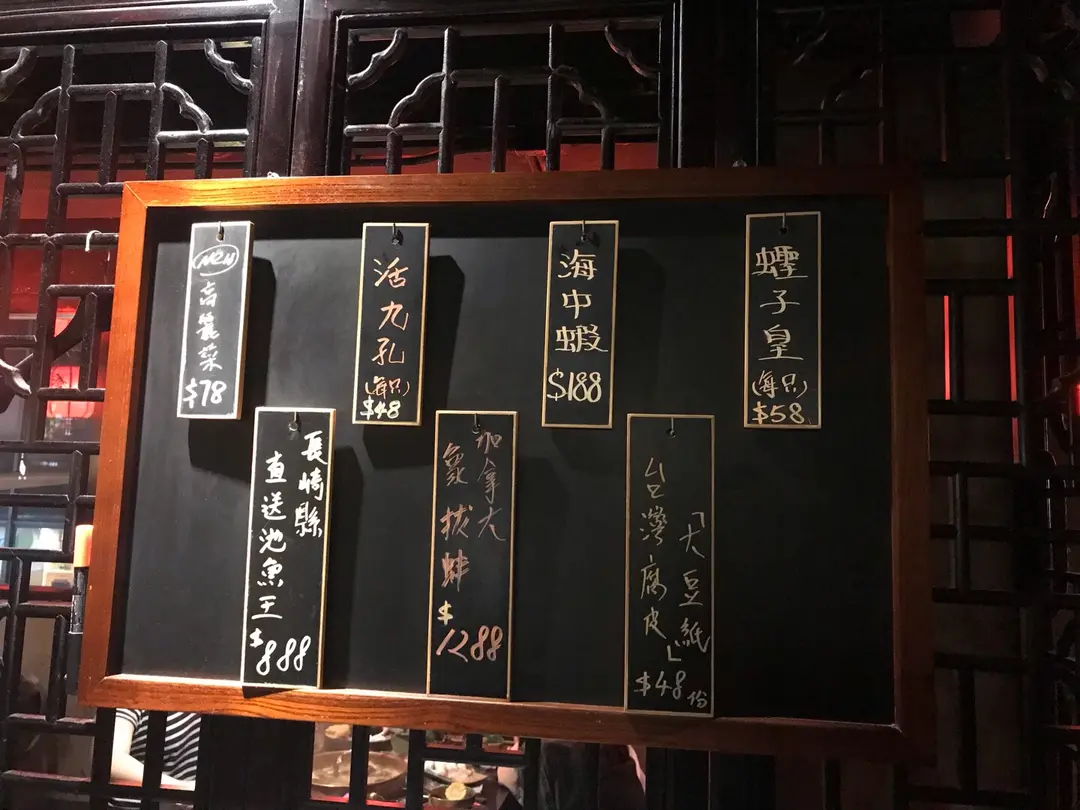 New
高麗菜
$78
活九孔
(每只)
$48
海中蝦
$188
蟶子皇
(每只)
$58
長崎縣
直送池魚王
$888
加拿大
象拔蚌
$
1288
「大豆紙」
台灣腐皮
$48份